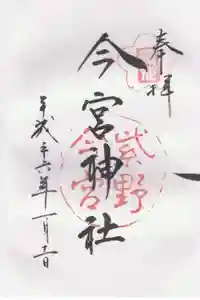 奉拝
今宮神社
紫野
今宮
平成二十六年一月三日